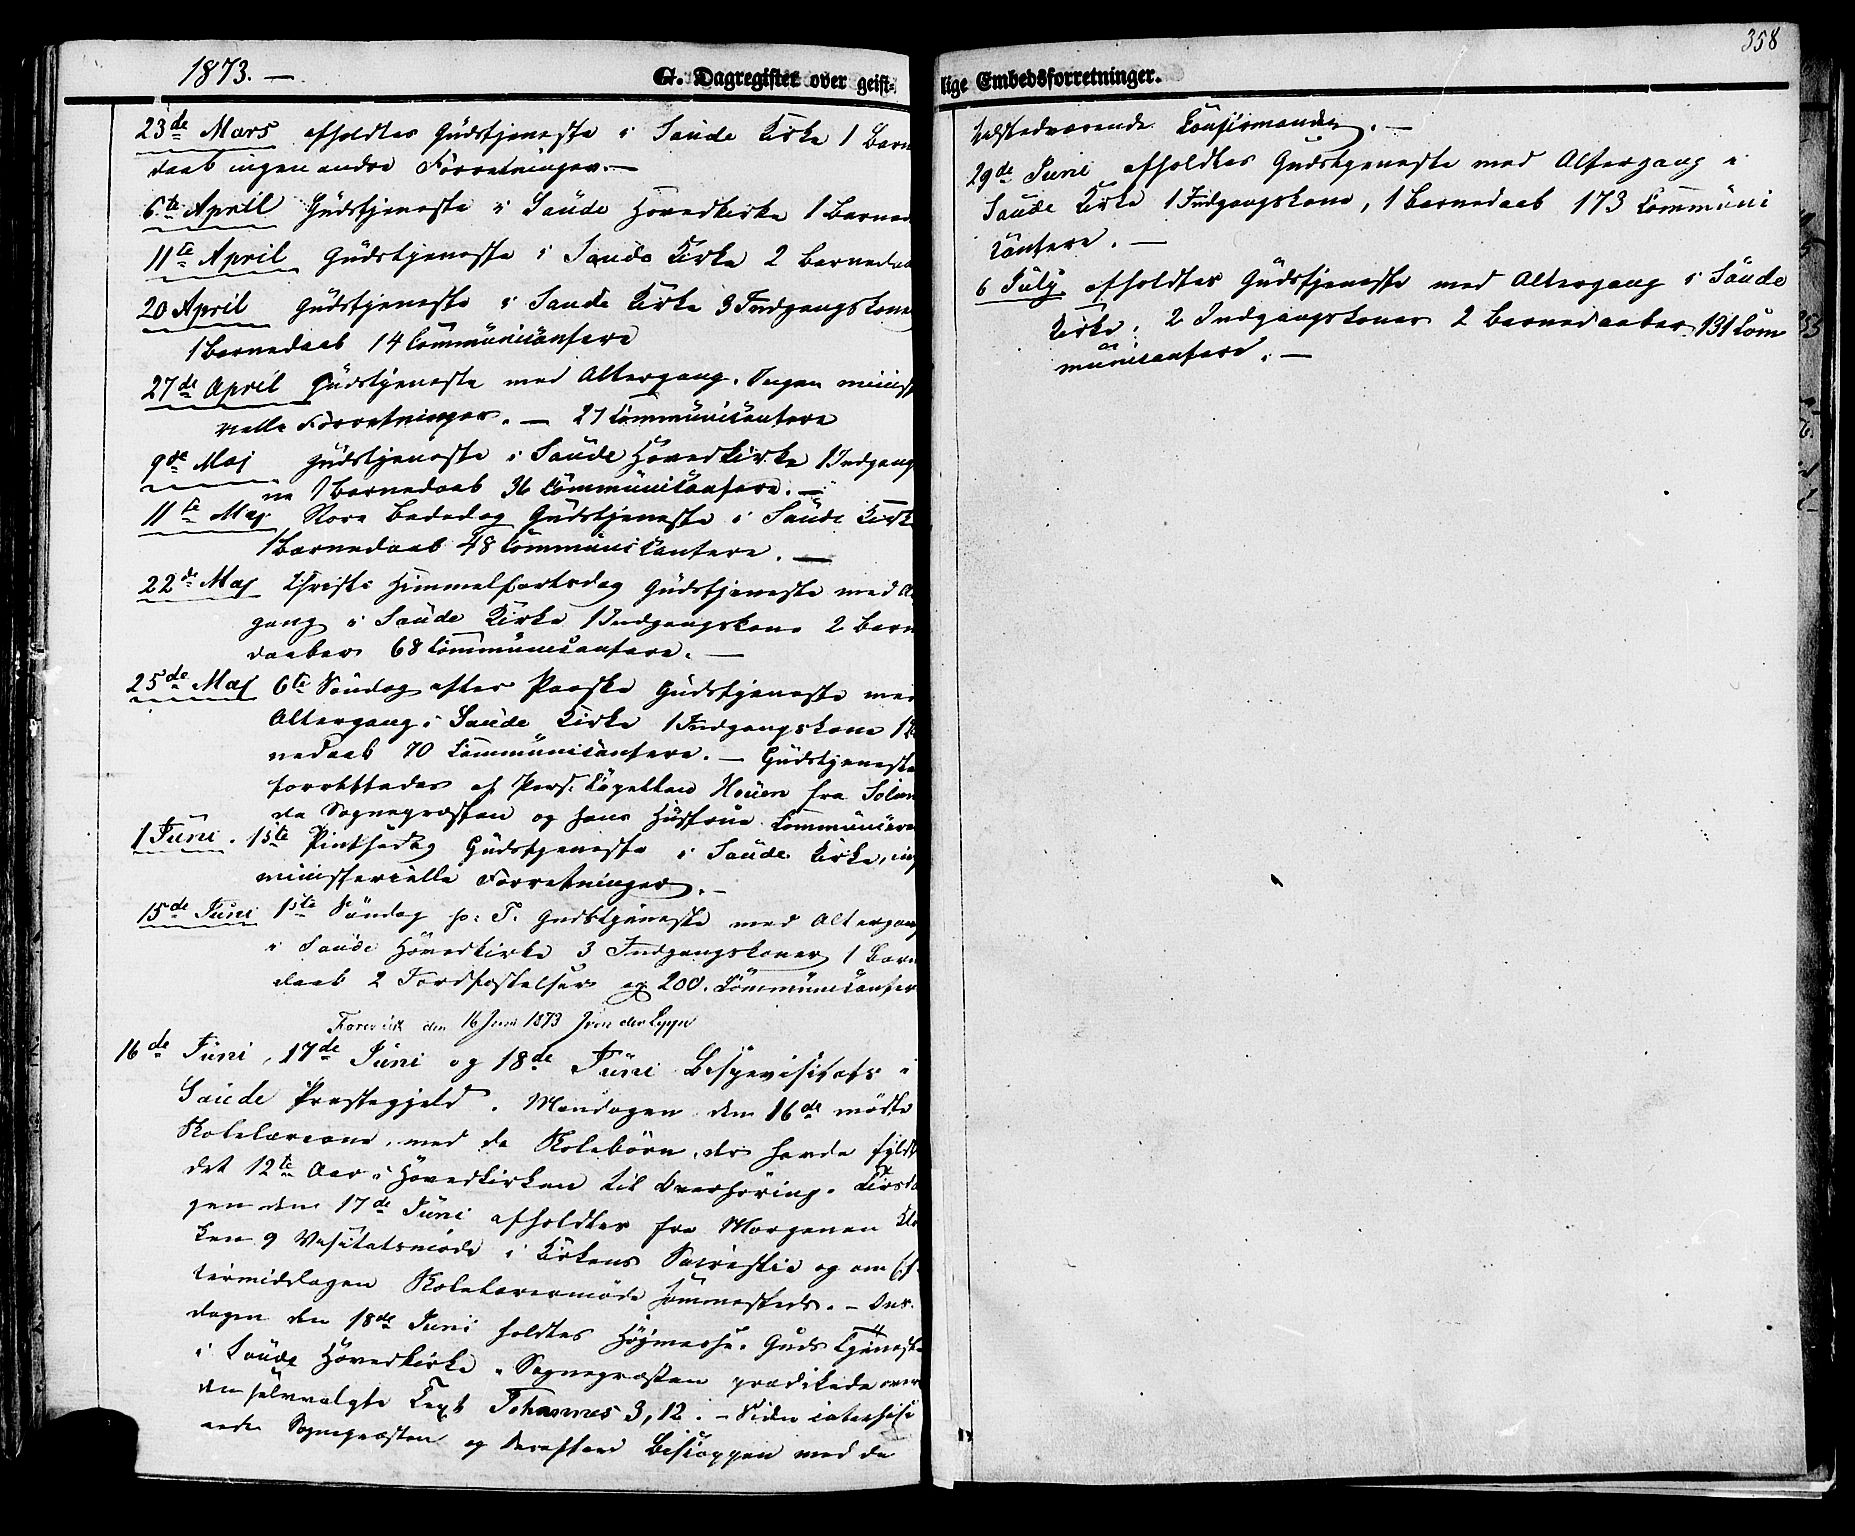 1873. —
G. Dagregister over geist-
23de Mars afholdtes Gudstjeneste i Saude Kirke 1 Barne
daab ingen andre Forretninger. —
6te April Gudstjeneste i Saude Hovedkirke 1 Barned
11te April Gudstjeneste i Saude Kirke 2 Barnedaab
20 April Gudstjeneste i Saude Kirke 3 Indgangskone
1 Barnedaab 14 Communicantere
27de April Gudstjeneste med Altergang. Ingen minist
rielle Forretninger. — 27 Communicantere
9de Maj Gudstjeneste i Saude Hovedkirke 1 Indgang
1 Barnedaab 36 Communicantere. —
11te Maj Store Bededag Gudstjeneste i Saude Kirke
1 Barnedaab 48 Communicantere. —
22de Maj Christi Himmelfartsdag Gudstjeneste med Al
gang i Saude Kirke 1 Indgangskone 2 Barne
daaber 68 Communicantere. —
25de Maj 6te Søndag efter Paaske Gudstjeneste med
Altergang i Saude Kirke 1 Indgangskone 1 Ba
nedaab 70 Communicantere. — Gudstjeneste
forrettedes af Pers. Capellan Houen fra Solum
da Sognepræsten og hans Hustrue Communicere
1 Juni. 1ste Pintsedag Gudstjeneste i Saude Kirke, ing
ministerielle Forretninger. —
15de Juni 1ste Søndag p: T. Gudstjeneste med Altergang
i Saude Hovedkirke 3 Indgangskoner 1 Barne
daab 2 Jordfæstelser og 200. Communicanter
Foreviist den 16 Juni 1873 J von der Lippe
16de Juni, 17de Juni og 18de Juni Bispevisitats i
Saude Præstegjeld. Mandagen den 16de mødte
Skolelærerne med de Skolebörn, der havde fyldt
det 12te Aar i Hovedkirken til Overhøring. Tirsda
gen den 17de Juni afholdtes fra Morgenen Klo
ken 9 Visitatsmøde i Kirkens Sacristie og om Ef
termiddagen Skolelærermøde sammesteds. — Ons-
dagen den 18de Juni holdtes Højmesse-Gudstjeneste
i Saude Hovedkirke. Sognepræsten prædikede over
den selvvalgte Text Johannes 3, 12. — Siden catechise
rede Sognepræsten og derefter Biscoppen med de
358
lige Embedsforretninger.
tilstedværende Confirmander. —
29de Juni afholdtes Gudstjeneste med Altergang i
Saude Kirke 1 Indgangskone, 1 Barnedaab 173 Communi
cantere. —
6 July. afholdtes Gudstjeneste med Altergang i Saude
Kirke. 2 Indgangskoner 2 Barnedaaber 131 Com
municantere. —